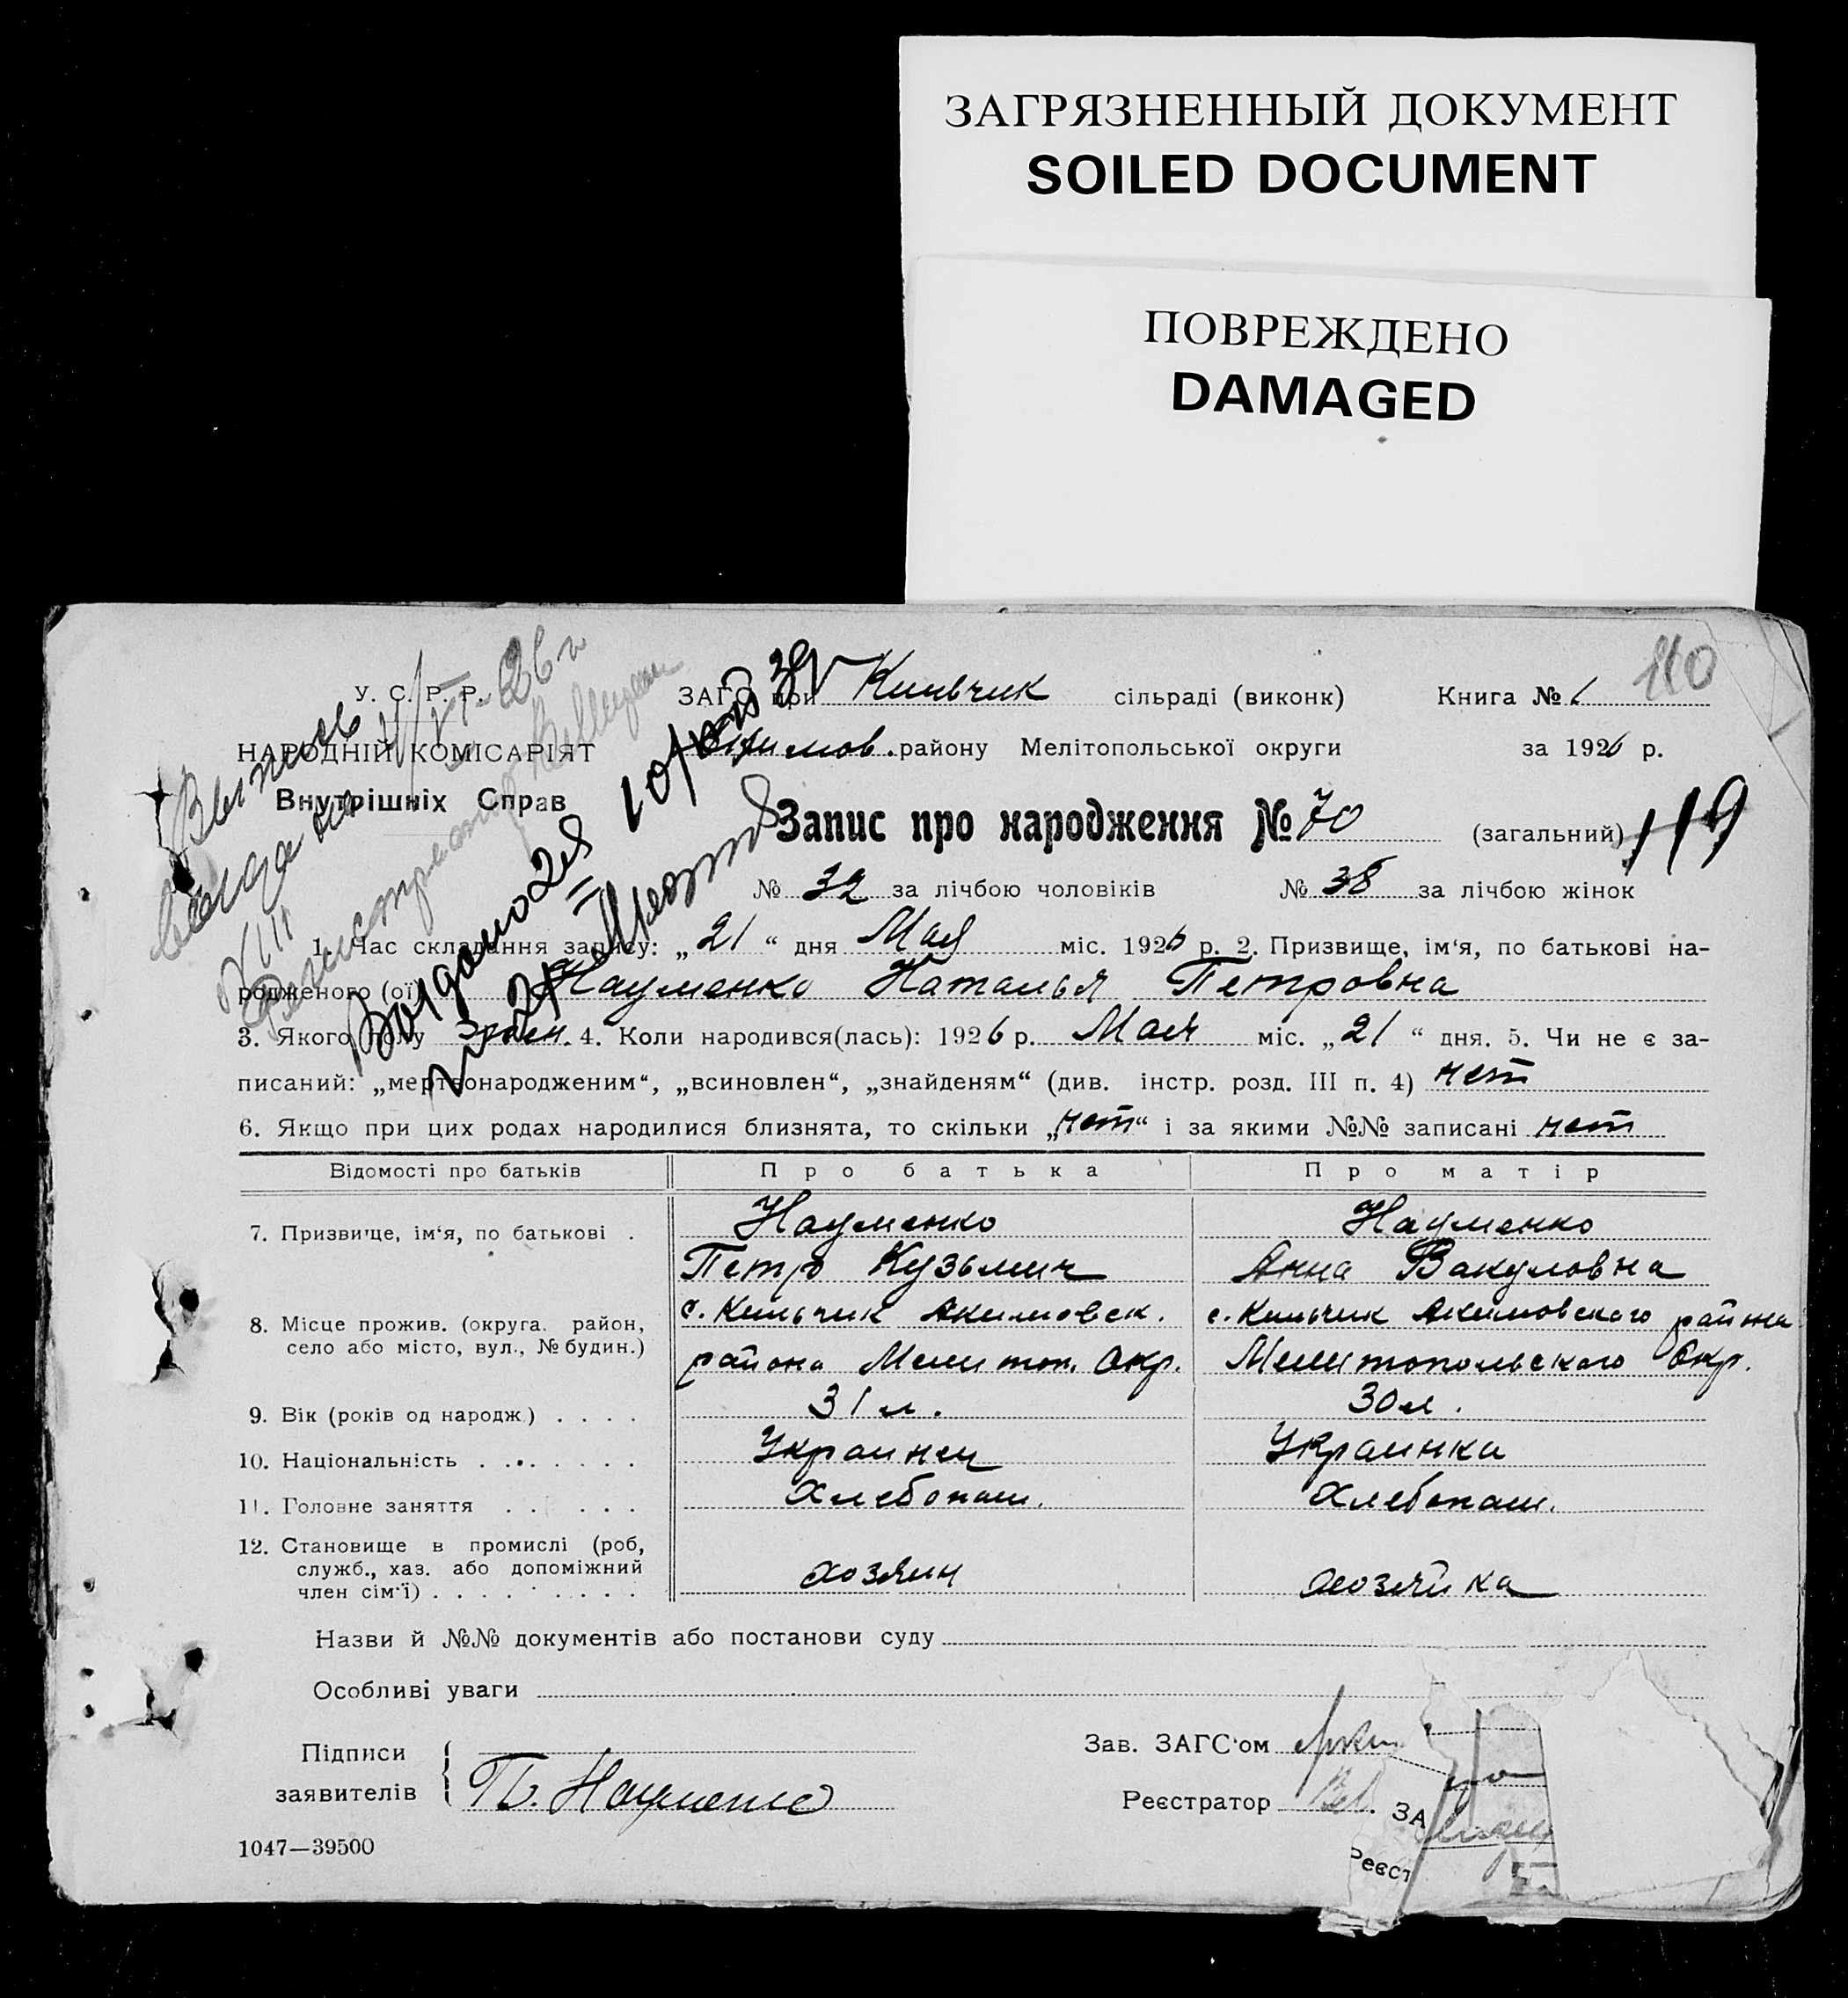 ЗАГРЯЗНЕННЫЙ ДОКУМЕНТ
SOILED DOCUMENT
ПОВРЕЖДЕНО
DAMAGED
110
У. С. Р. Р.
НАРОДНІЙ КОМІСАРІЯТ
Внутрішніх Справ
ЗАГС при Кильчик сільраді (виконк) Книга № 1
Акимов. району Мелітопольської округи за 1926 р.
Запис про народження № 70 (загальний) 119
№ 32 за лічбою чоловіків № 38 за лічбою жінок
1. Час складання запису: „21“ дня Мая міс. 1926 р. 2. Призвище, ім‘я, по батькові на-
родженого (ої) Науменко Наталья Петровна
3. Якого полу жен. 4. Коли народився(лась): 1926 р. Мая міс. „21“ дня. 5. Чи не є за-
писаний: „мертвонародженим“, „всиновлен“, „знайденям“ (див. інстр. розд. III п. 4) нет
6. Якщо при цих родах народилися близнята, то скільки „нет“ і за якими №№ записані нет
Відомості про батьків Про батька Про матір
7. Призвище, ім‘я, по батькові . Науменко Науменко
Петр Кузьмич Анна Вакуловна
8. Місце прожив. (округа. район, с. Кильчик Акимовск. с. Кильчик Акимовского района
село або місто, вул., № будин.) района Мелитоп. Окр. Мелитопольского Окр.
9. Вік (років од народж.) . . . . 31 л. 30 л.
10. Національність . . . . . . . Украинец Украинка
11. Головне заняття . . . . . Хлебопаш. Хлебопаш.
12. Становище в промислі (роб,
служб., хаз. або допоміжний хозяин хозяйка
член сім‘ї) . . . . . . . . .
Назви й №№ документів або постанови суду
Особливі уваги
Підписи Зав. ЗАГС‘ом
заявителів П. Науменко Реєстратор
ЗА
Реєст
1047—39500
Выпись